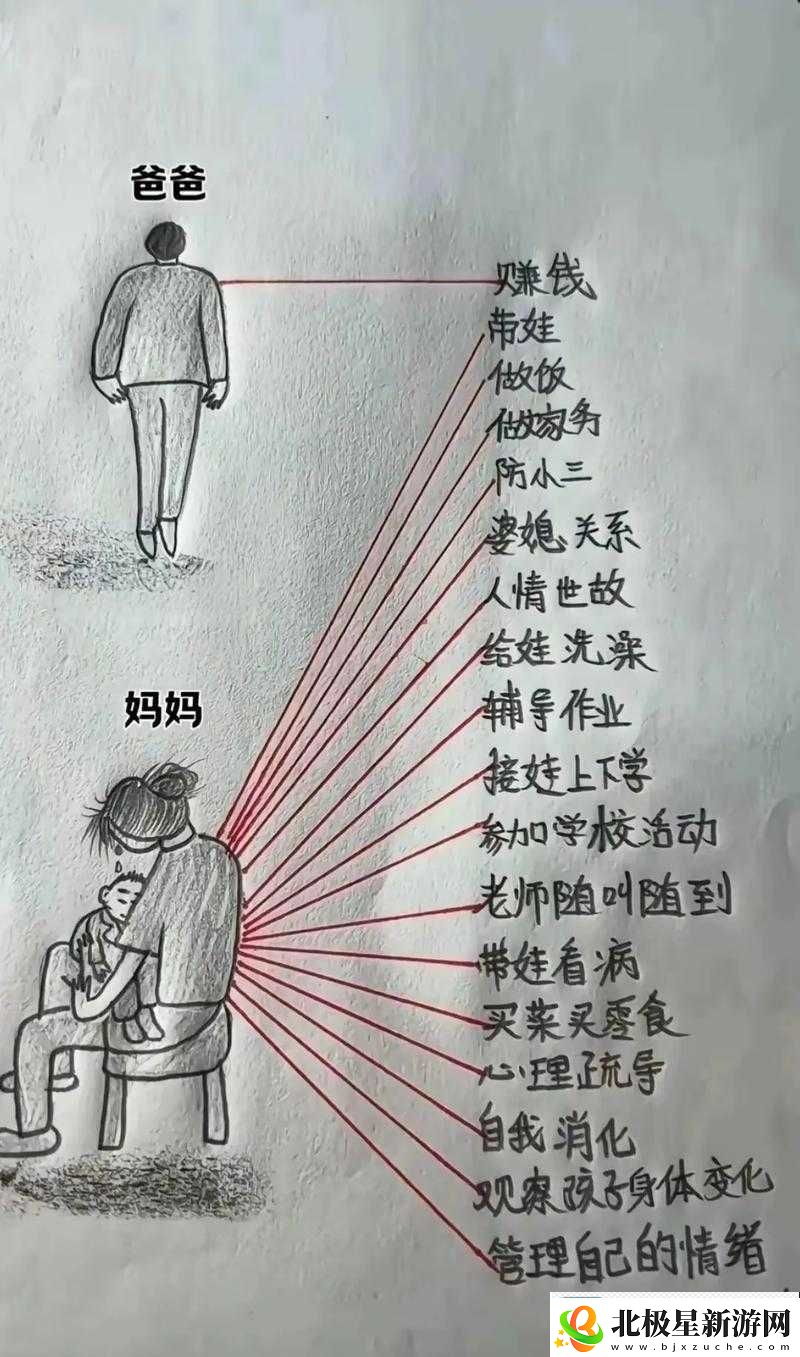 爸爸
赚钱
带娃
做饭
做家务
防小三
婆媳关系
人情世故
给娃洗澡
妈妈
辅导作业
接娃上下学
参加学校活动
老师随叫随到
带娃看病
买菜买零食
心理疏导
自我消化
观察孩子身体变化
管理自己的情绪
北极星新游网
www.bjxzuche.com